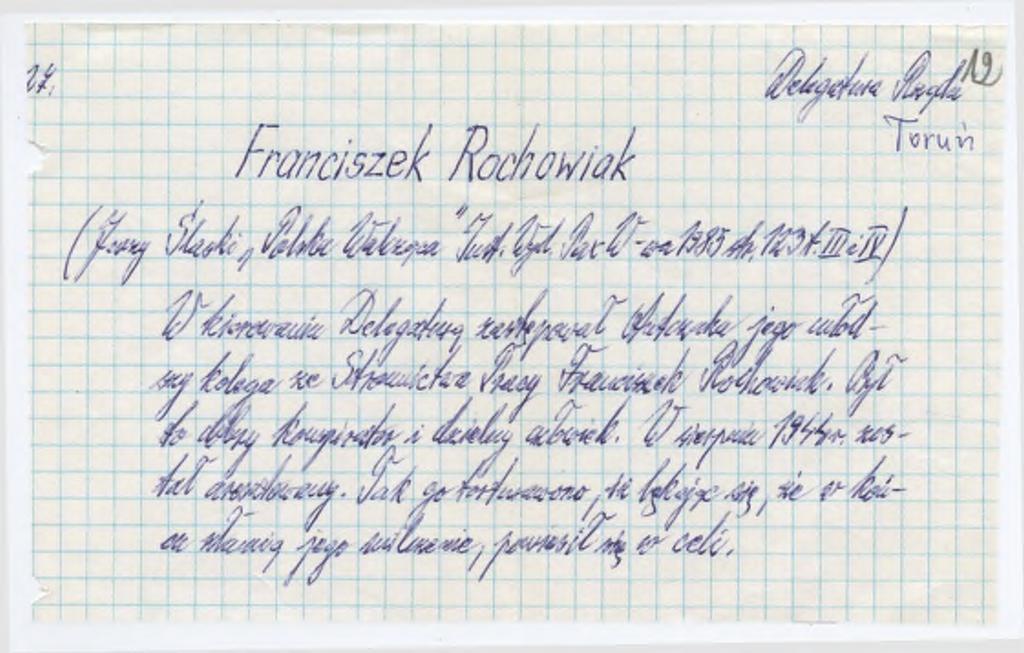 27.
12
Delegatura Rządu
Toruń
Franciszek Rochowiak
(Jerzy Ślaski „Polska Walcząca" Inst. Wyd. Pax W-wa 1985 str. 123 t. III i IV)
W kierowaniu Delegaturą zastępował Antczaka jego młod-
szy kolega ze Stronnictwa Pracy Franciszek Rochowiak. Był
to dobry konspirator i dzielny człowiek. W sierpniu 1944r. zos-
tał aresztowany. Tak go torturowano, że lękając się, że w koń-
cu złamią jego milczenie, powiesił się w celi.